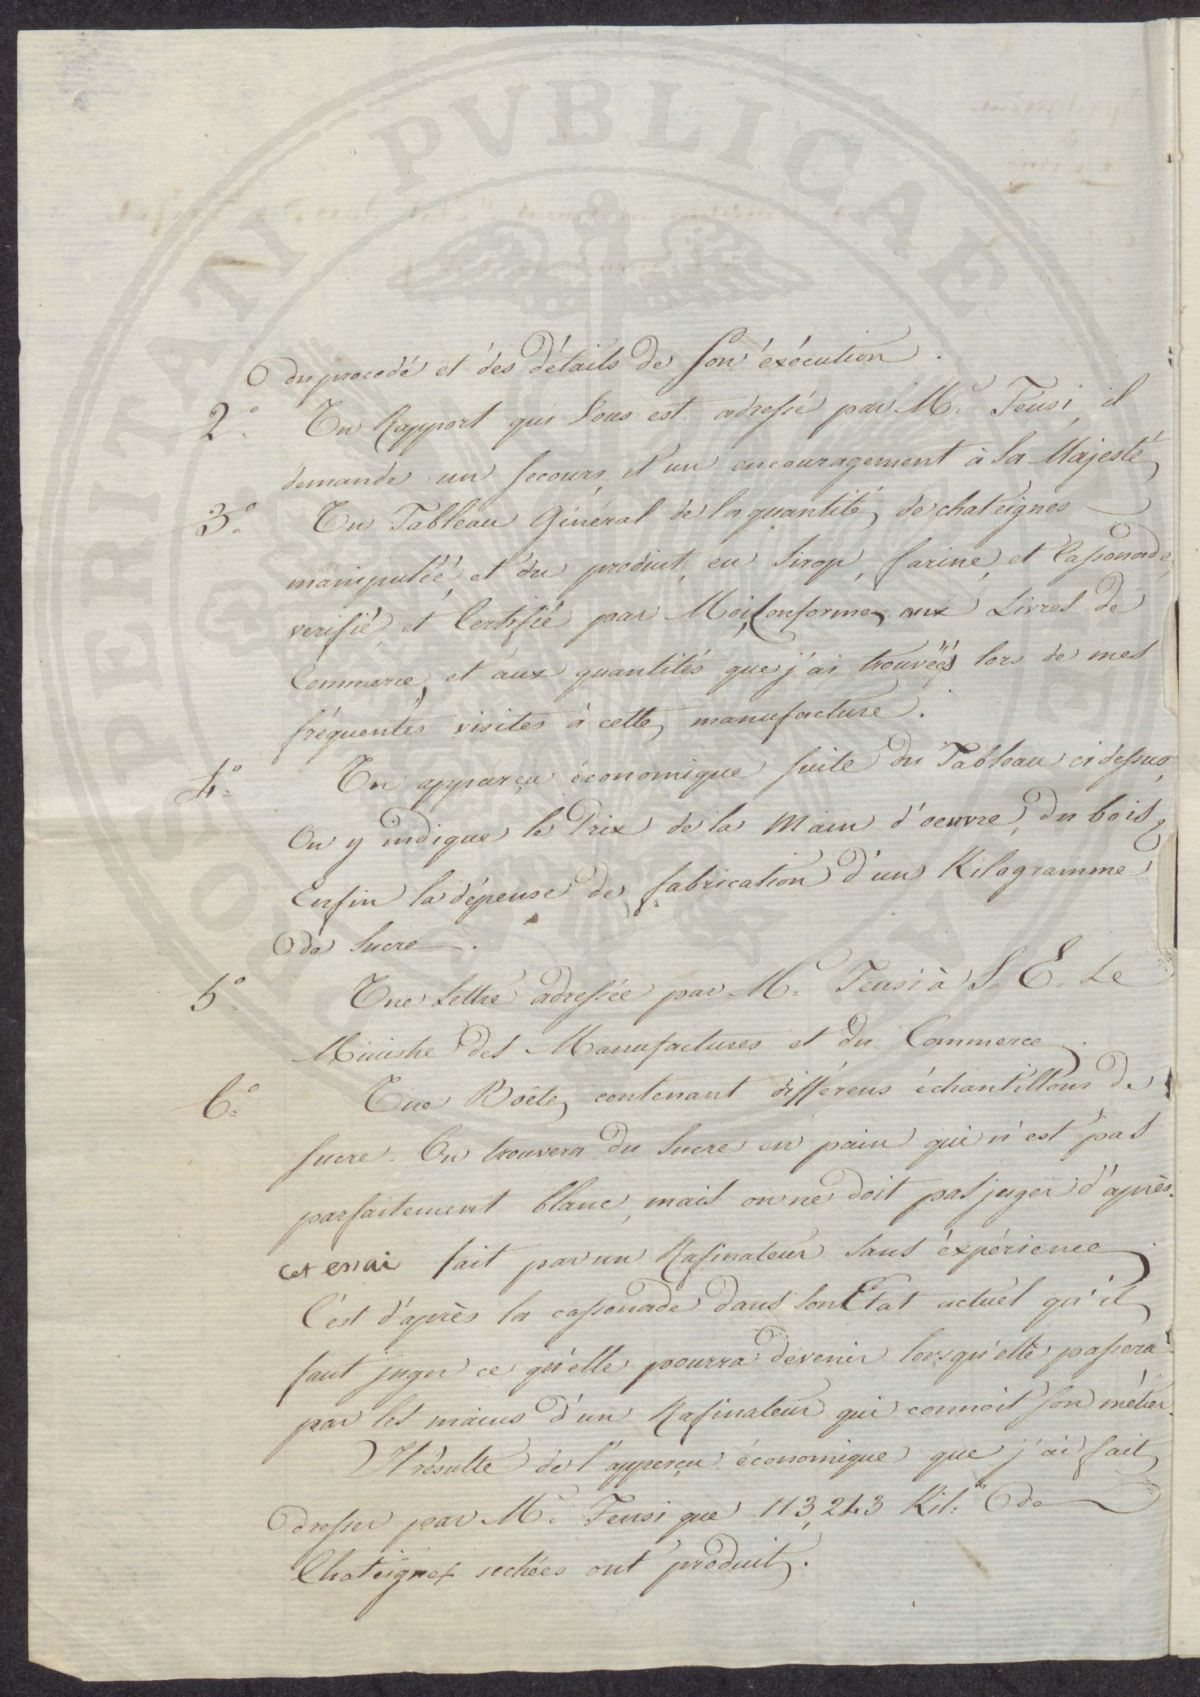 PROSPERITATI PVBLICAE
du procedé et des détails de son éxécution.
2.° Un Rapport qui Vous est adressé par M.r Teusi, il
demande un secours et un encouragement à Sa Majesté
3.° Un Tableau Général de la quantité de chateignes
manipulée, et du produit, en Sirop, farine, et Cassonade,
verifié et Certifié par Moi, Conforme aux Livres de
Commerce, et aux quantités que j'ai trouvées lors de mes
fréquentes visites à cette manufacture.
4.° Un apparçu économique suite du Tableau ci dessus,
On y indique le Prix de la Main d'oeuvre, du bois,
Enfin la dépense de fabrication d'un Kilogramme
de Sucre.
5.° Une Lettre adressée par M.r Teusi à S. E. Le
Ministre des Manufactures et du Commerce.
6.° Une Boëte, contenant différens échantillons de
sucre. On trouvera du Sucre en pain qui n'est pas
parfaitement blanc, mais on ne doit pas juger d'après
cet essai fait par un Rafinateur sans éxpérience.
C'est d'après la cassonade dans son Etat actuel qu'il
faut juger ce qu'elle pourra devenir lorsqu'elle passera
par les mains d'un Rafinateur qui connoit son métier.
Il résulte de l'apperçu économique que j'ai fait
dresser par M.r Teusi que 113,243 Kil. de
Chateignes sechées ont produit.